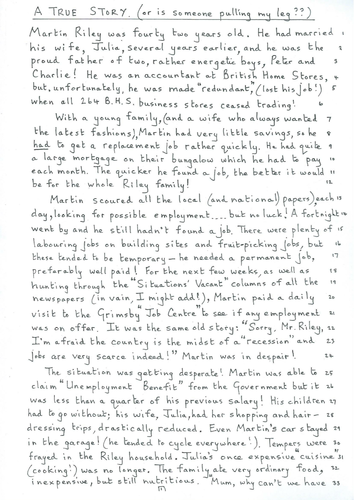 A TRUE STORY. (or is someone pulling my leg??)
Martin Riley was fourty two years old. He had married 1
his wife, Julia, several years earlier, and he was the 2
proud father of two, rather energetic boys, Peter and 3
Charlie! He was an accountant at British Home Stores, 4
but, unfortunately, he was made "redundant", (lost his job!) 5
when all 264 B.H.S. business stores ceased trading! 6
With a young family, (and a wife who always wanted 7
the latest fashions), Martin had very little savings, so he 8
had to get a replacement job rather quickly. He had quite 9
a large mortgage on their bungalow which he had to pay 10
each month. The quicker he found a job, the better it would 11
be for the whole Riley family! 12
Martin scoured all the local (and national) papers), each 13
day, looking for possible employment.... but no luck! A fortnight 14
went by and he still hadn't found a job. There were plenty of 15
labouring jobs on building sites and fruit-picking jobs, but 16
these tended to be temporary - he needed a permanent job, 17
preferably well paid! For the next few weeks, as well as 18
hunting through the "Situations' Vacant" columns of all the 19
newspapers (in vain, I might add!), Martin paid a daily 20
visit to the Grimsby "Job Centre" to see if any employment 21
was on offer. It was the same old story: "Sorry, Mr. Riley, 22
I'm afraid the country is the midst of a "recession" and 23
jobs are very scarce indeed!" Martin was in despair! 24
The situation was getting desperate! Martin was able to 25
claim "Unemployment Benefit" from the Government but it 26
was less then a quarter of his previous salary! His children 27
had to go without; his wife, Julia, had her shopping and hair- 28
dressing trips, drastically reduced. Even Martin's car stayed 29
in the garage! (he tended to cycle everywhere!). Tempers were 30
frayed in the Riley household. Julia's once, expensive cuisine 31
(cooking!) was no longer. The family ate very ordinary food, 32
inexpensive, but still nutritious. "Mum, why can't we have 33